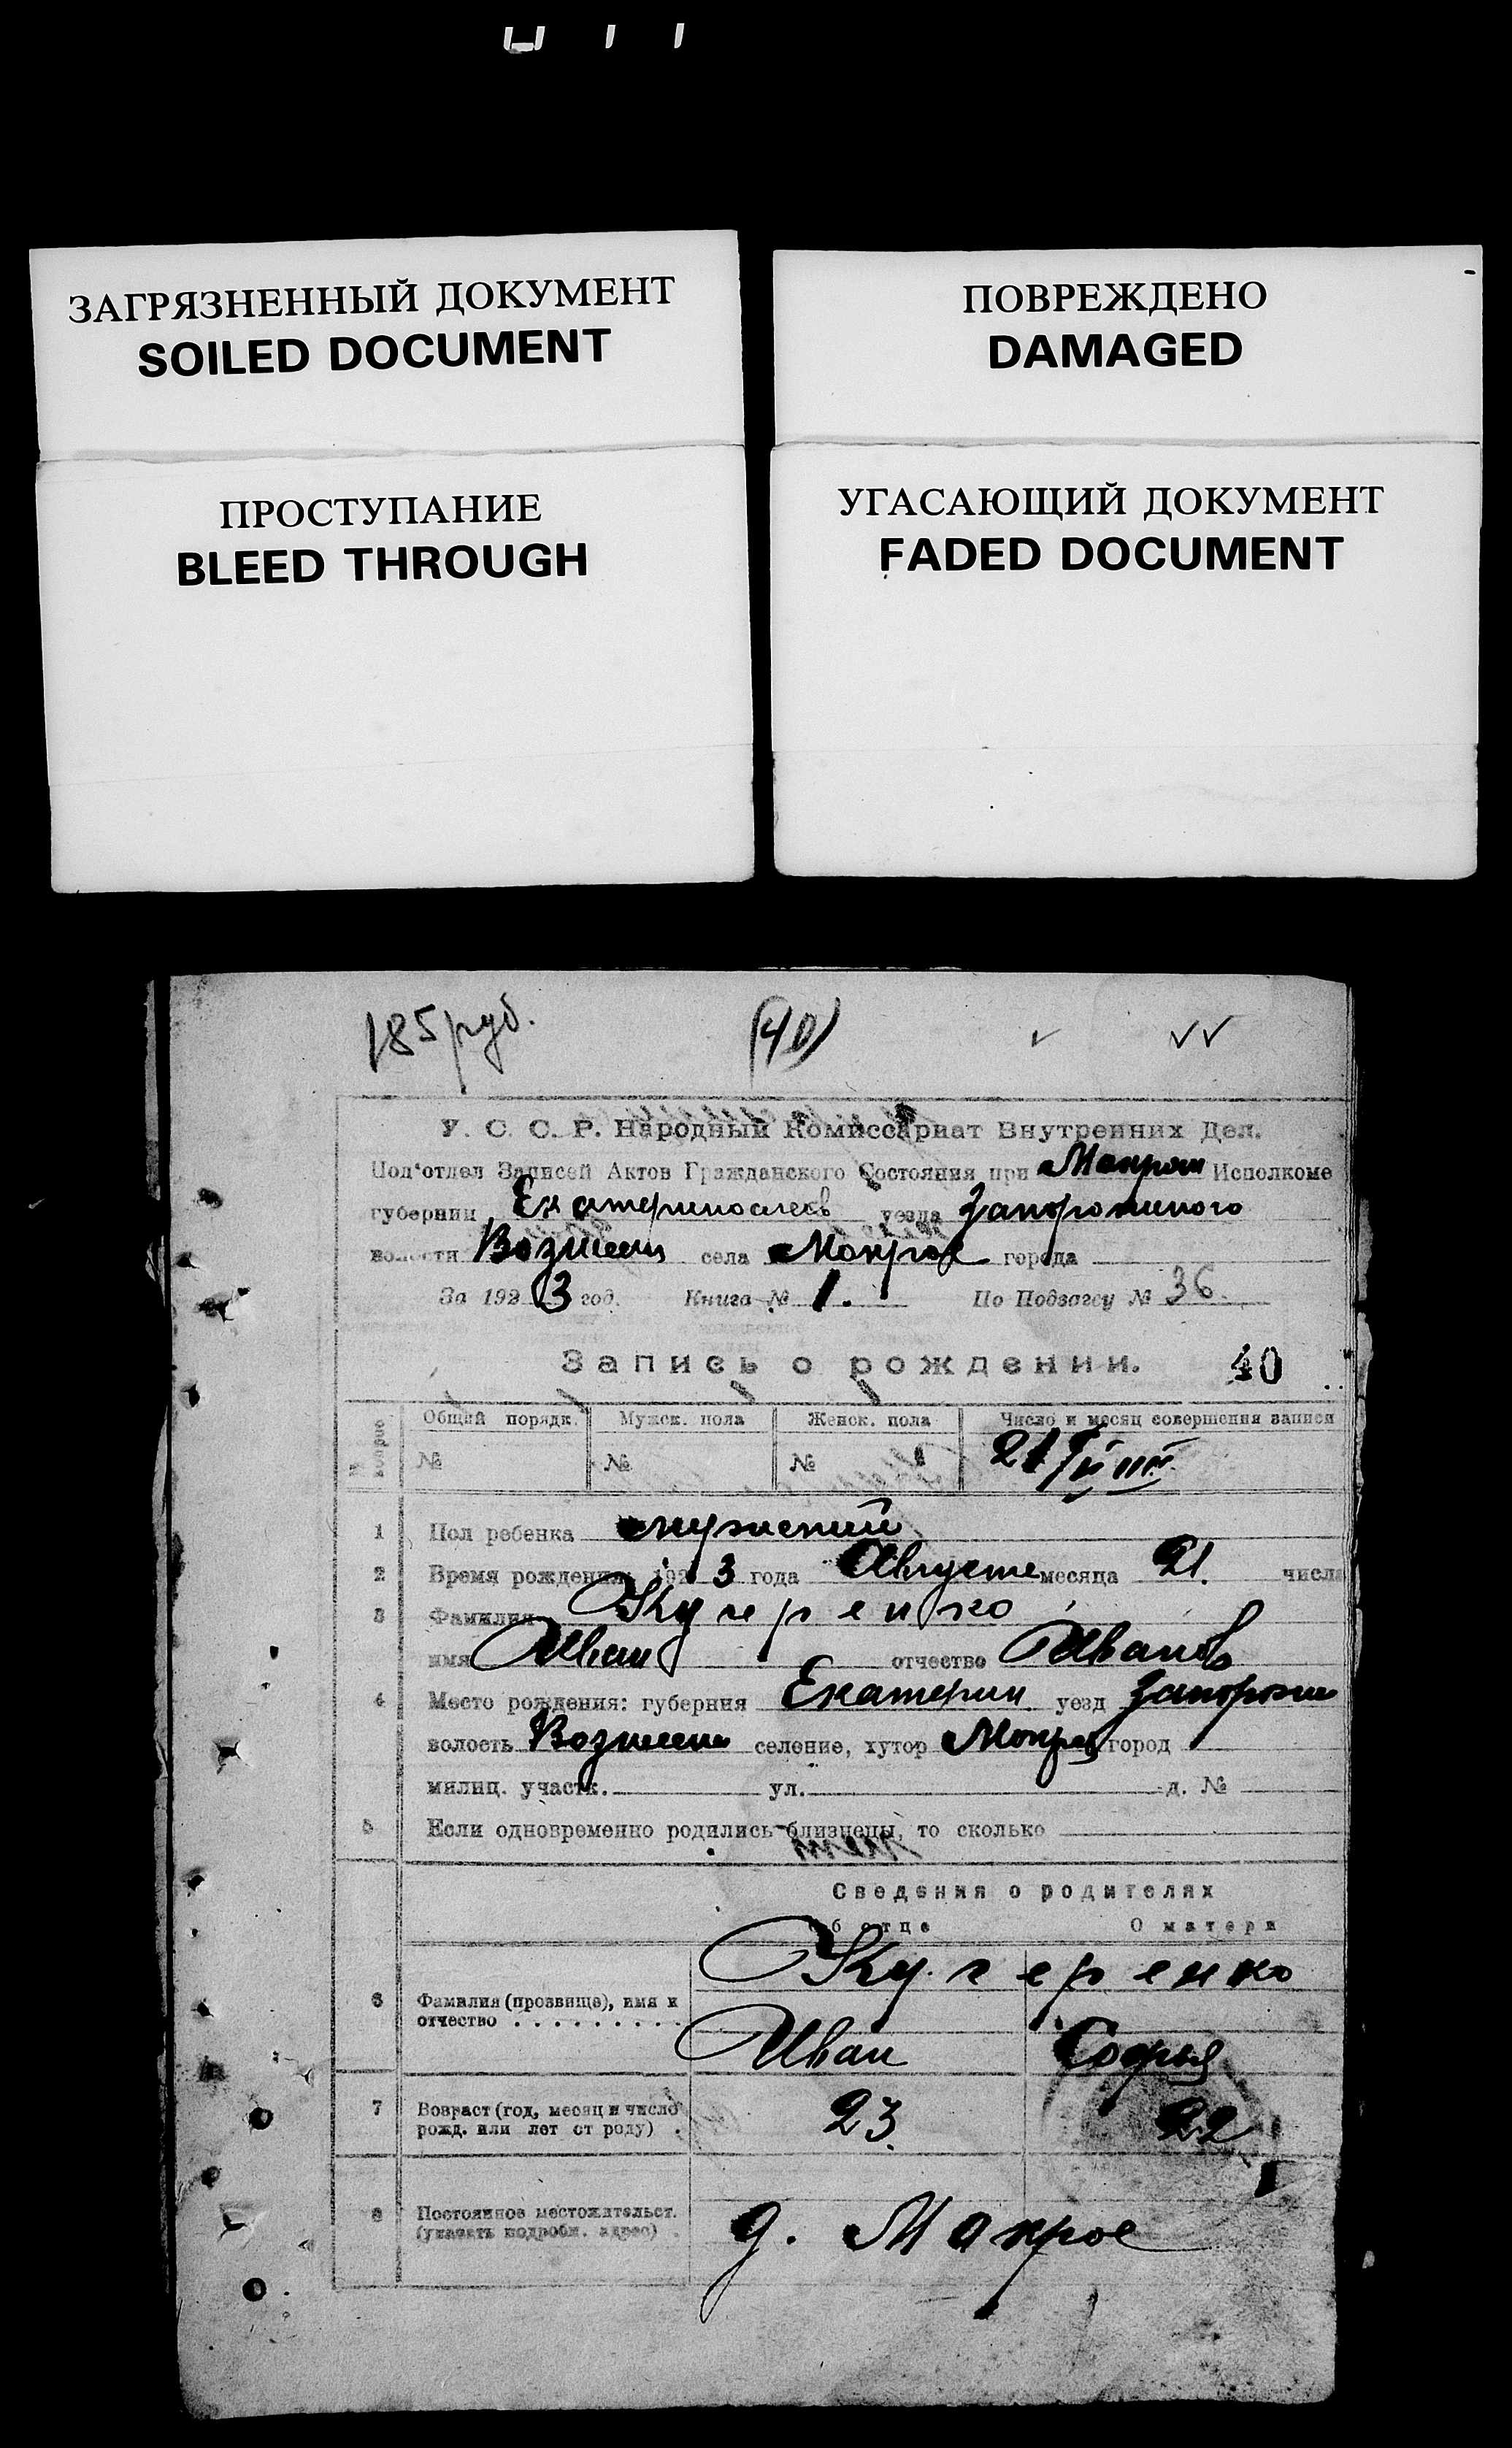 ЗАГРЯЗНЕННЫЙ ДОКУМЕНТ
SOILED DOCUMENT
ПОВРЕЖДЕНО
DAMAGED
ПРОСТУПАНИЕ
BLEED THROUGH
УГАСАЮЩИЙ ДОКУМЕНТ
FADED DOCUMENT
185 руб.
(40)
У. С. С. Р. Народный Комиссариат Внутренних Дел.
Под'отдел Записей Актов Гражданского Состояния при Мокром Исполкоме
губернии Екатеринослав уезда Запорожского
волости Вознесен села Мокрое города
За 1923 год. Книга № 1. По Подзагсу № 36.
Запись о рождении. 40
Общий порядк. Мужск. пола Женск. пола Число и месяц совершения записи
№ № № 21/VIII
1 Пол ребенка мужский
2 Время рождения 1923 года Августа месяца 21. числа
3 Фамилия Кучеренко
имя Иван отчество Иванов
4 Место рождения: губерния Екатерин. уезд Запорож
волость Вознесен селение, хутор Мокрое город
милиц. участк. ул. д. №
5 Если одновременно родились близнецы, то сколько
Сведения о родителях
Об отце О матери
Кучеренко
6 Фамилия (прозвище), имя и
отчество . . . . . . . . .
Иван Софья
7 Возраст (год, месяц и число
рожд. или лет от роду) .
23. 22
8 Постоянное местожительст.
(указать подробн. адрес) .
д. Мокрое